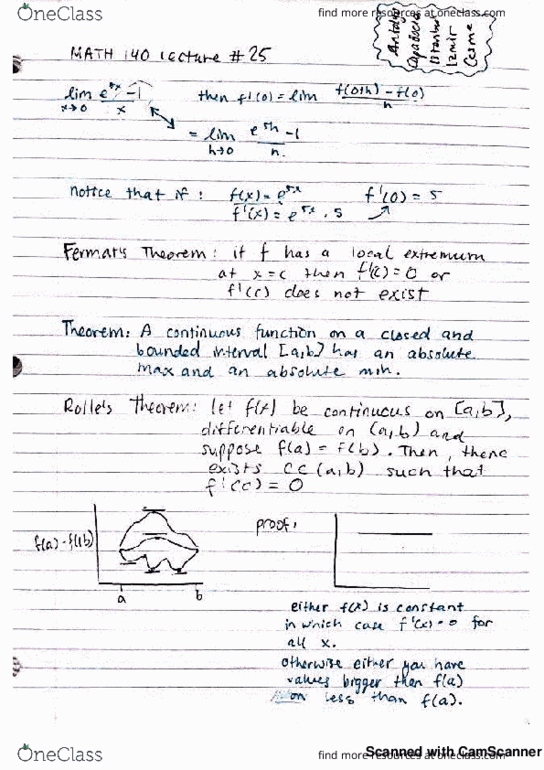 OneClass
find more resources at oneclass.com
Antalya
Capadocia
Istanbul
Izmir
Cesme
MATH 140 Lecture # 25
lim x→0 (e^5x - 1)/x then f'(0) = lim (f(0+h) - f(0))/h
= lim h→0 (e^5h - 1)/h.
notice that if : f(x) = e^5x f'(0) = 5
f'(x) = e^5x . 5
Fermat's Theorem: if f has a local extremum
at x=c then f'(c) = 0 or
f'(c) does not exist
Theorem: A continuous function on a closed and
bounded interval [a,b] has an absolute
max and an absolute min.
Rolle's Theorem: let f(x) be continuous on [a,b],
differentiable on (a,b) and
suppose f(a) = f(b). Then, there
exists c ∈ (a,b) such that
f'(c) = 0
f(a) - f(b)
a b
proof:
either f(x) is constant
in which case f'(x) = 0 for
all x.
otherwise either you have
values bigger than f(a)
less than f(a).
Scanned with CamScanner
OneClass
find more resources at oneclass.com